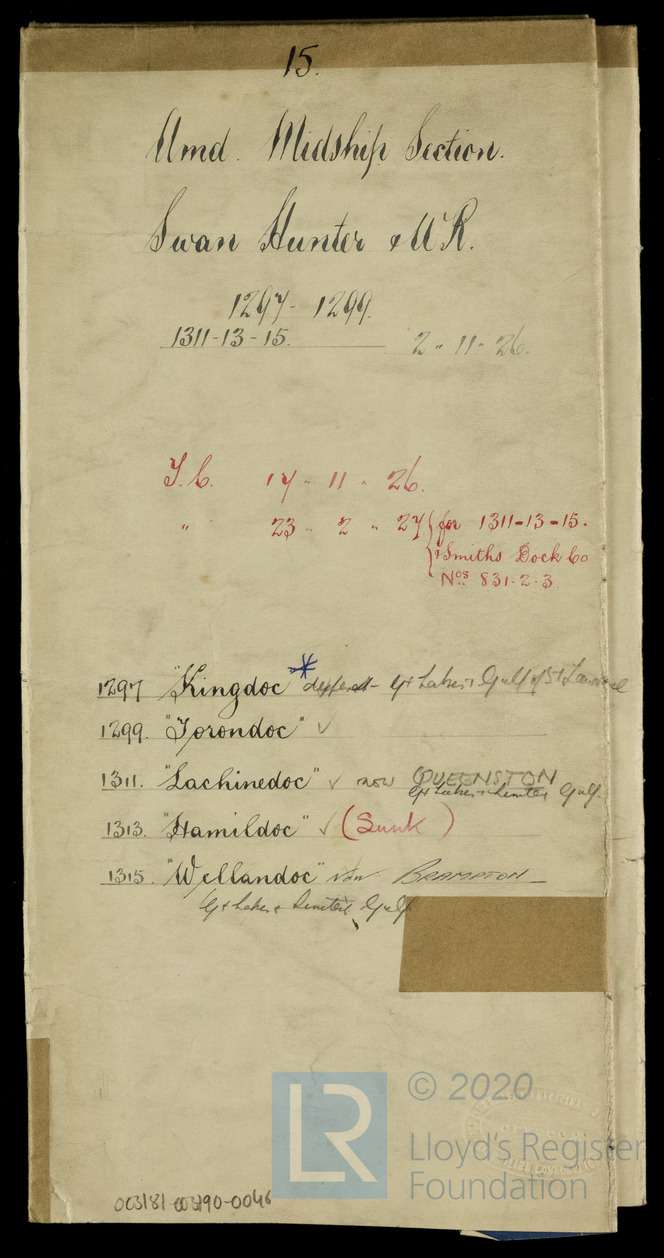 15.
Amd. Midship Section.
Swan Hunter & W R.
1297 - 1299.
1311-13-15.
2 - 11 - 26.
T.C. 17 - 11 - 26.
" 23 - 2 - 27 { for 1311-13-15.
{ & Smiths Dock Co
Nos 831-2-3.
1297 "Kingdoc" * Gt Lakes & Gulf of St Lawrence
1299. "Torondoc" ✓
1311. "Lachinedoc" ✓ now QUEENSTON
Gt Lakes & Limited Gulf.
1313. "Hamildoc" ✓ (Sunk)
1315. "Wellandoc" now BRAMPTON
Gt Lakes & Limited Gulf.
LR
© 2020
Lloyd's Register
Foundation
003181-003190-0046